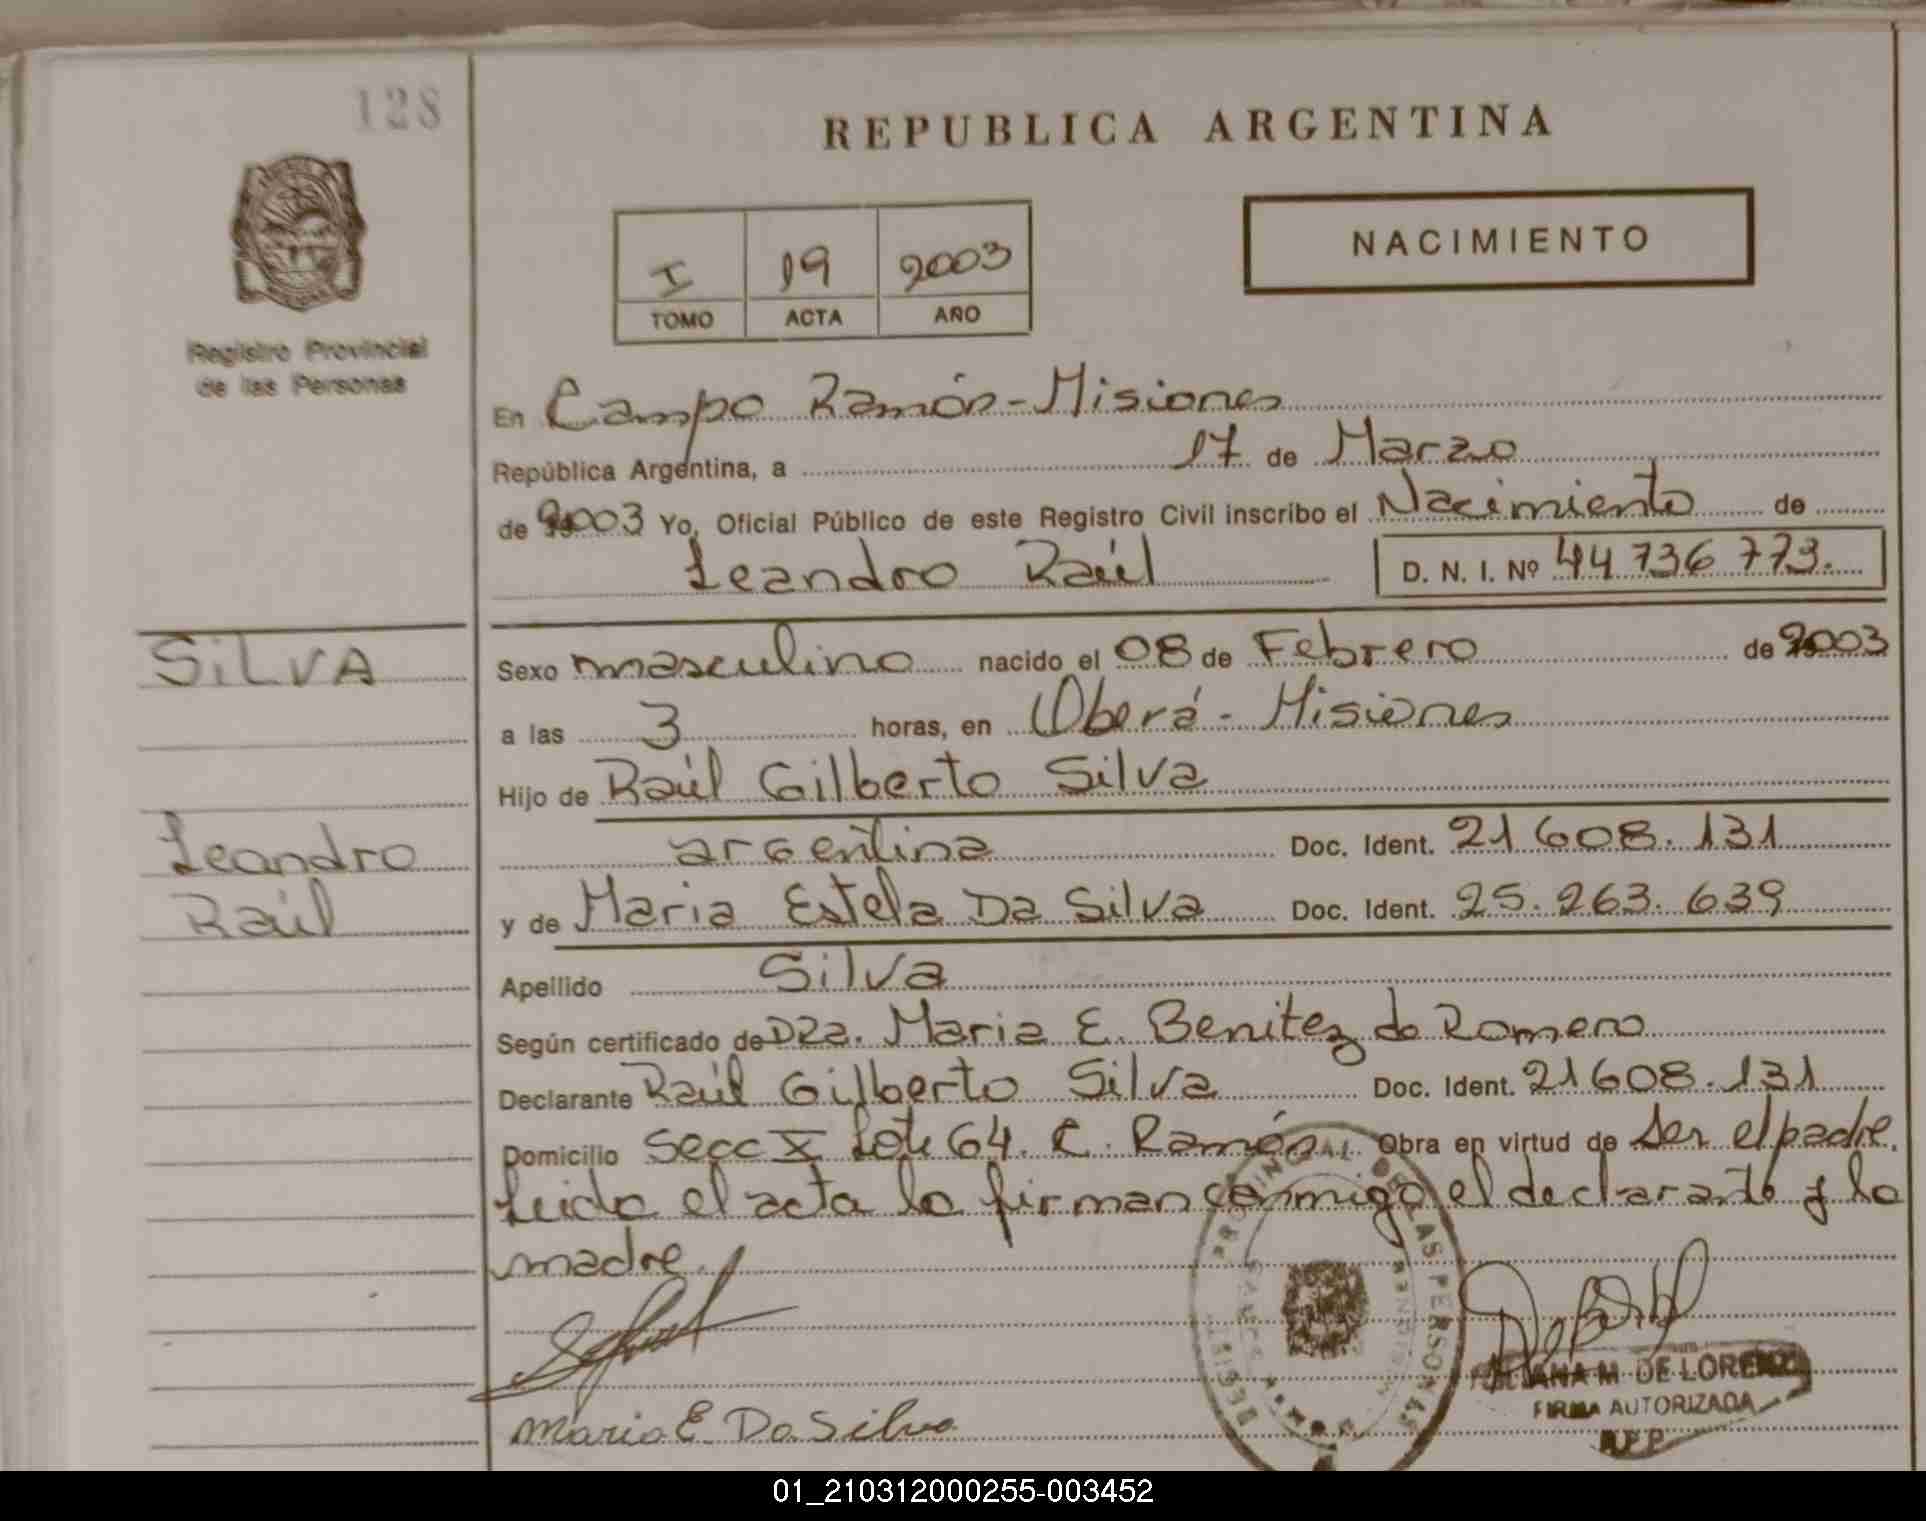 128
REPUBLICA ARGENTINA
NACIMIENTO
I 19 2003
TOMO ACTA AÑO
Registro Provincial
de las Personas
En Campo Ramón - Misiones
República Argentina, a 17 de Marzo
de 2003 Yo, Oficial Público de este Registro Civil inscribo el Nacimiento de
Leandro Raúl D. N. I. Nº 44 736 773.
SiLVA
Sexo masculino nacido el 08 de Febrero de 2003
a las 3 horas, en Oberá - Misiones
Hijo de Raúl Gilberto Silva
Leandro
argentina Doc. Ident. 21 608. 131
Raúl
y de Maria Estela Da Silva Doc. Ident. 25. 263. 639
Apellido Silva
Según certificado de DRa. Maria E. Benitez de Romero
Declarante Raúl Gilberto Silva Doc. Ident. 21 608. 131
Domicilio Secc X Lote 64. C. Ramón. Obra en virtud de Ser el padre.
Leida el acta la firman conmigo el declarante y la
madre.
PROVINCIAL DE LAS PERSONAS
M. DE LORENZO
FIRMA AUTORIZADA
Maria E. Da Silva
01_210312000255-003452